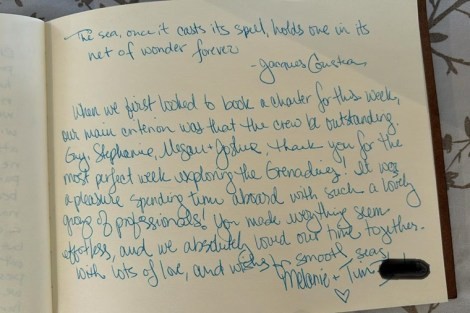 The sea, once it casts its spell, holds one in its
net of wonder forever
- Jacques Cousteau
When we first looked to book a charter for this week,
our main criterion was that the crew be outstanding.
Guy, Stephanie, Megan + Joshua, thank you for the
most perfect week exploring the Grenadines! It was
a pleasure spending time aboard with such a lovely
group of professionals! You made everything seem
effortless, and we absolutely loved our time together.
With lots of love, and wishes for smooth seas,
Melanie + Tim